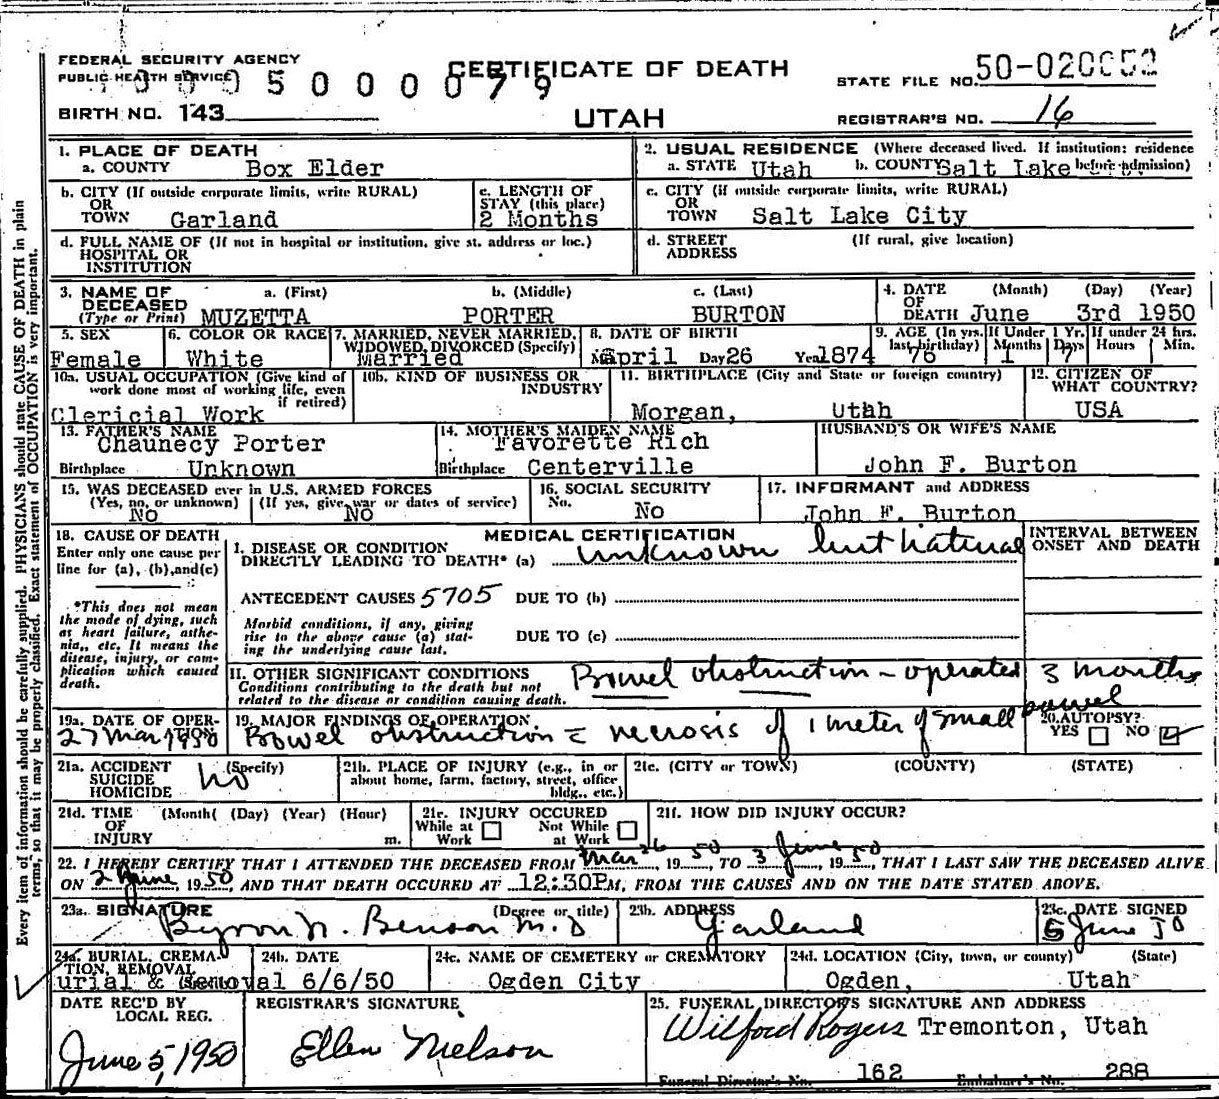 FEDERAL SECURITY AGENCY
PUBLIC HEALTH SERVICE
CERTIFICATE OF DEATH
STATE FILE NO.
5 0 0 0 0 7 9
BIRTH NO. 143
UTAH
REGISTRAR'S NO. 16
1. PLACE OF DEATH
a. COUNTY Box Elder
2. USUAL RESIDENCE (Where deceased lived. If institution: residence before admission)
a. STATE Utah b. COUNTY Salt Lake
b. CITY (If outside corporate limits, write RURAL)
OR
TOWN Garland
c. LENGTH OF
STAY (this place)
2 Months
c. CITY (if outside corporate limits, write RURAL)
OR
TOWN Salt Lake City
d. FULL NAME OF (If not in hospital or institution, give st. address or loc.)
HOSPITAL OR
INSTITUTION
d. STREET (If rural, give location)
ADDRESS
3. NAME OF
DECEASED
(Type or Print)
a. (First) b. (Middle) c. (Last)
MUZETTA PORTER BURTON
4. DATE (Month) (Day) (Year)
OF
DEATH June 3rd 1950
5. SEX
Female
6. COLOR OR RACE
White
7. MARRIED, NEVER MARRIED,
WIDOWED, DIVORCED (Specify)
Married
8. DATE OF BIRTH
April Day 26 Year 1874
9. AGE (In yrs. last birthday) 76
If Under 1 Yr. Months 1 Days 7
If under 24 hrs. Hours Min.
10a. USUAL OCCUPATION (Give kind of
work done most of working life, even
if retired)
Clericial Work
10b. KIND OF BUSINESS OR
INDUSTRY
11. BIRTHPLACE (City and State or foreign country)
Morgan, Utah
12. CITIZEN OF
WHAT COUNTRY?
USA
13. FATHER'S NAME
Chaunecy Porter
Birthplace Unknown
14. MOTHER'S MAIDEN NAME
Favorette Rich
Birthplace Centerville
HUSBAND'S OR WIFE'S NAME
John F. Burton
15. WAS DECEASED ever in U.S. ARMED FORCES
(Yes, no, or unknown) (If yes, give war or dates of service)
No No
16. SOCIAL SECURITY
No. No
17. INFORMANT and ADDRESS
John F. Burton
18. CAUSE OF DEATH
Enter only one cause per
line for (a), (b), and (c)
*This does not mean
the mode of dying, such
as heart failure, asthe-
nia, etc. It means the
disease, injury, or com-
plication which caused
death.
MEDICAL CERTIFICATION
I. DISEASE OR CONDITION
DIRECTLY LEADING TO DEATH* (a) unknown but natural
INTERVAL BETWEEN
ONSET AND DEATH
ANTECEDENT CAUSES 5705 DUE TO (b)
Morbid conditions, if any, giving
rise to the above cause (a) stat-
ing the underlying cause last.
DUE TO (c)
II. OTHER SIGNIFICANT CONDITIONS
Conditions contributing to the death but not
related to the disease or condition causing death.
Bowel obstruction - operated 3 months
19a. DATE OF OPER-
ATION
27 Mar 1950
19. MAJOR FINDINGS OF OPERATION
Bowel obstruction necrosis of 1 meter of small bowel
20. AUTOPSY?
YES NO
21a. ACCIDENT (Specify)
SUICIDE
HOMICIDE
No
21b. PLACE OF INJURY (e.g., in or
about home, farm, factory, street, office
bldg., etc.)
21c. (CITY or TOWN) (COUNTY) (STATE)
21d. TIME (Month( (Day) (Year) (Hour)
OF
INJURY m.
21e. INJURY OCCURED
While at Work Not While at Work
21f. HOW DID INJURY OCCUR?
22. I HEREBY CERTIFY THAT I ATTENDED THE DECEASED FROM Mar 26, 19 50, TO 3 June, 19 50, THAT I LAST SAW THE DECEASED ALIVE
ON 2 June 19 50, AND THAT DEATH OCCURED AT 12:30PM, FROM THE CAUSES AND ON THE DATE STATED ABOVE.
23a. SIGNATURE (Degree or title)
Byron N. Benson M.D
23b. ADDRESS
Garland
23c. DATE SIGNED
5 June 50
24a. BURIAL, CREMA-
TION, REMOVAL
urial & removal
24b. DATE
6/6/50
24c. NAME OF CEMETERY or CREMATORY
Ogden City
24d. LOCATION (City, town, or county) (State)
Ogden, Utah
DATE REC'D BY
LOCAL REG.
June 5, 1950
REGISTRAR'S SIGNATURE
Ellen Nielson
25. FUNERAL DIRECTOR'S SIGNATURE AND ADDRESS
Wilford Rogers Tremonton, Utah
Funeral Director's No. 162 Embalmer's No. 288
Every item of information should be carefully supplied. PHYSICIANS should state CAUSE OF DEATH in plain
terms, so that it may be properly classified. Exact statement of OCCUPATION is very important.